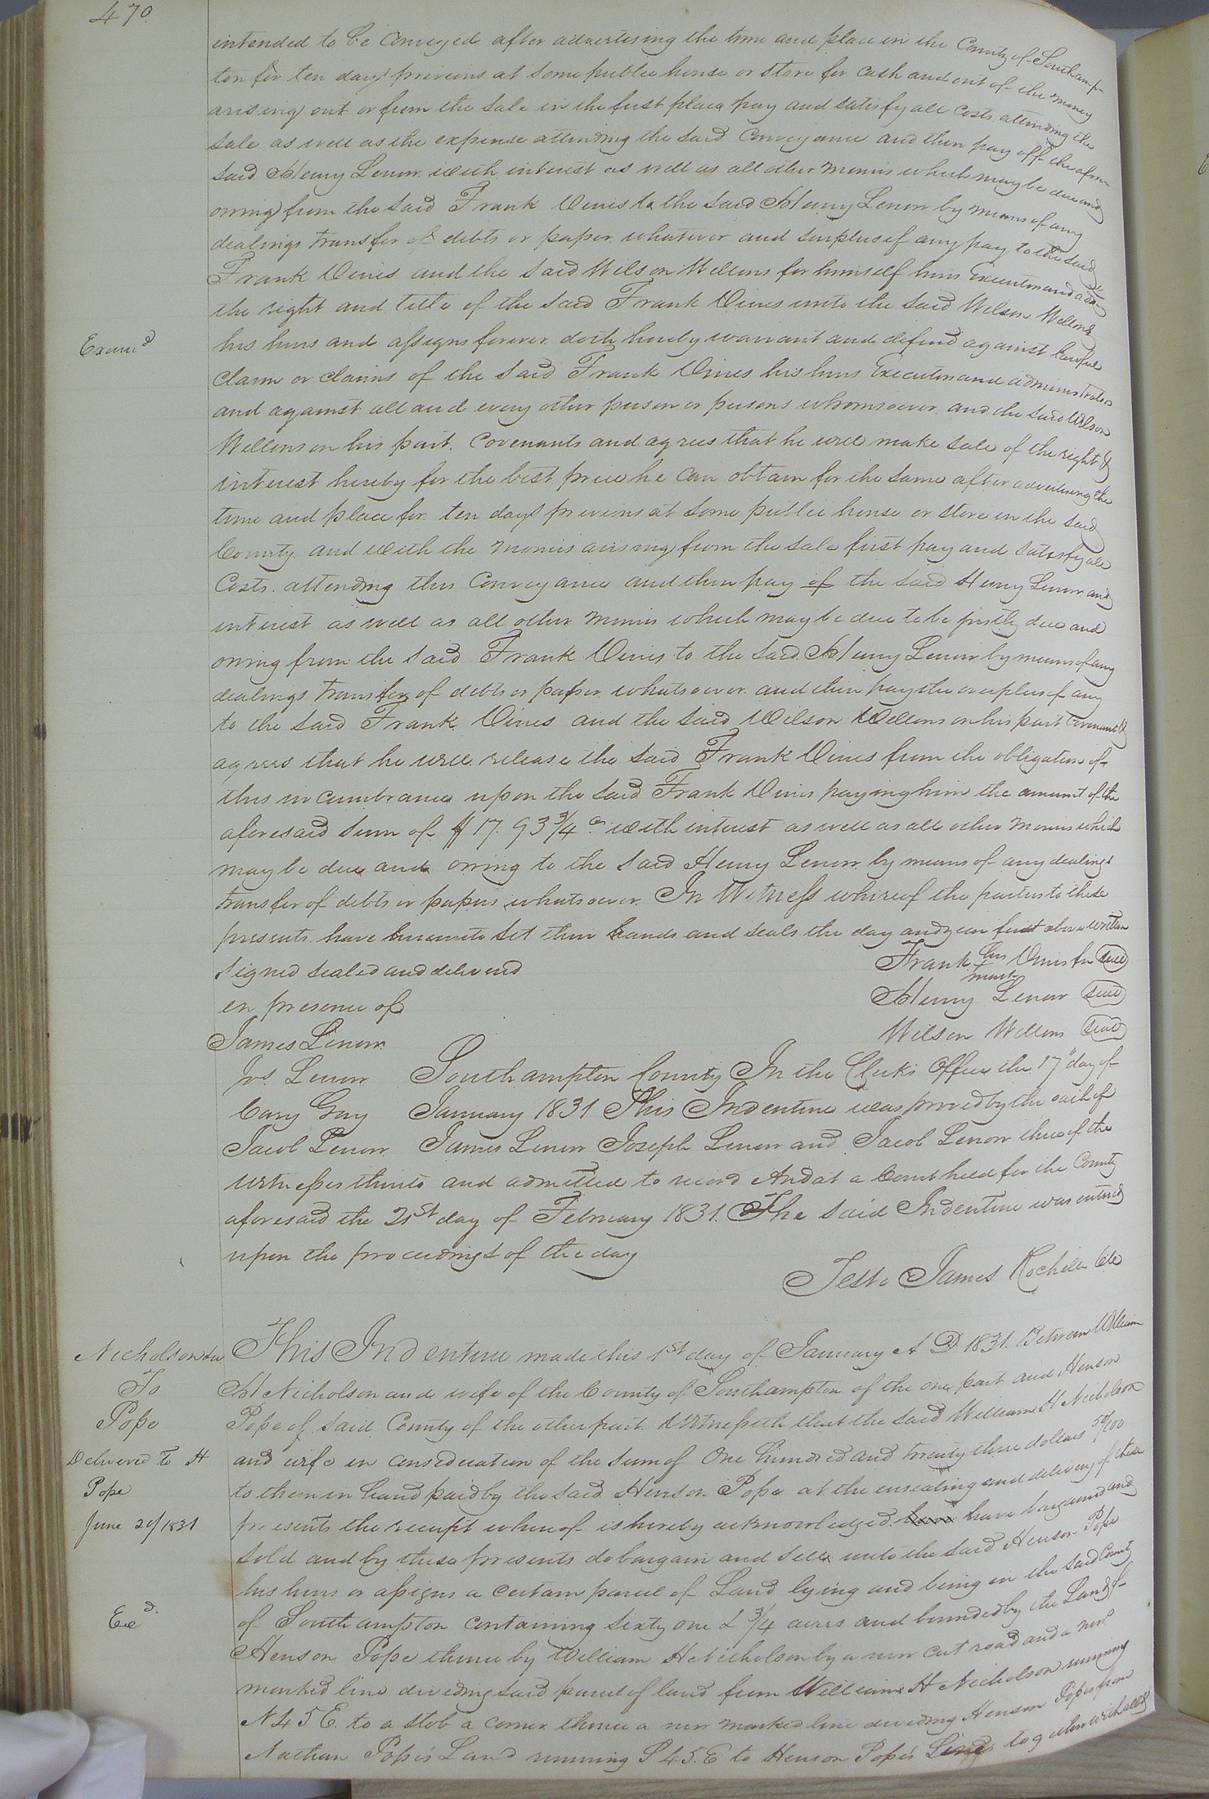 470
intended to be conveyed after advertising the time and place in the County of Southamp-
ton for ten days previous at some public house or store for cash and out of the money
arising out or from the sale in the first place pay and satisfy all costs attending the
sale as well as the expense attending the said Conveyance and then pay off the afore
said Henry Lenow with interest as well as all other monies which may be due and
owing from the said Frank Vines to the said Henry Lenow by means of any
dealings transfer of debts or paper whatever and surplus if any pay to the said
Frank Vines and the said Wilson Wellons for himself heirs Executors and
the right and title of the said Frank Vines unto the said Wilson Wellons
Examd
his heirs and assigns forever doth hereby warrant and defend against lawful
claim or claims of the said Frank Vines his heirs Executors and administrators
and against all and every other person or persons whomsoever and the said Wilson
Wellons on his part. Covenants and agrees that he will make sale of the right &
interest hereby for the best price he can obtain for the same after advertising the
time and place for ten days previous at some public house or store in the said
County and with the monies arising from the sale first pay and satisfy all
Costs attending this Conveyance and then pay of the said Henry Lenow and
interest as well as all other monies which may be due to be justly due and
owing from the said Frank Vines to the said Henry Lenow by means of any
dealings transfer of debts or paper whatsoever and then pay the overplus if any
to the said Frank Vines and the said Wilson Wellons on his part Covenants &
agrees that he will release the said Frank Vines from the obligation of
this incumbrance upon the said Frank Vines paying him the amount of the
aforesaid sum of $17.93 3/4 cs with interest as well as all other monies which
may be due and owing to the said Henry Lenow by means of any dealings
transfer of debts or papers whatsoever. In Witness whereof the parties to these
presents have hereunto set their hands and seals the day and year first above written
Signed sealed and delivered
Frank his mark Vines (seal)
in presence of
Henry Lenow (seal)
James Lenow
Wilson Wellons (seal)
Jos. Lenow Southampton County In the Clerk's Office the 17th day of
Cary Gay January 1831 This Indenture was proved by the oath of
Jacob Lenow James Lenow Joseph Lenow and Jacob Lenow three of the
witnesses thereto and admitted to record And at a Court held for the County
aforesaid the 21st day of February 1831. The said Indenture was entered
upon the proceedings of the day
Teste James Rochelle Clk
Nicholson &ux
To
Pope
Delivered to H
Pope
June 20/1831
Exd
This Indenture made this 1st day of January A D 1831. Between William
H Nicholson and wife of the County of Southampton of the one part and Henson
Pope of said County of the other part Witnesseth that the said William H Nicholson
and wife in consideration of the sum of One hundred and twenty three dollars 50/100
to them in hand paid by the said Henson Pope at the ensealing and delivery of these
presents the receipt whereof is hereby acknowledged have bargained and
sold and by these presents do bargain and sell unto the said Henson Pope
his heirs or assigns a certain parcel of Land lying and being in the said County
of Southampton containing sixty one & 3/4 acres and bounded by the Land of
Henson Pope thence by William H Nicholson by a new cut road and a new
marked line dividing said parcel of land from William H Nicholson running
N45E. to a stob a corner thence a new marked line dividing Henson Pope from
Nathan Pope's Land running S45.E to Henson Pope's Line together with all